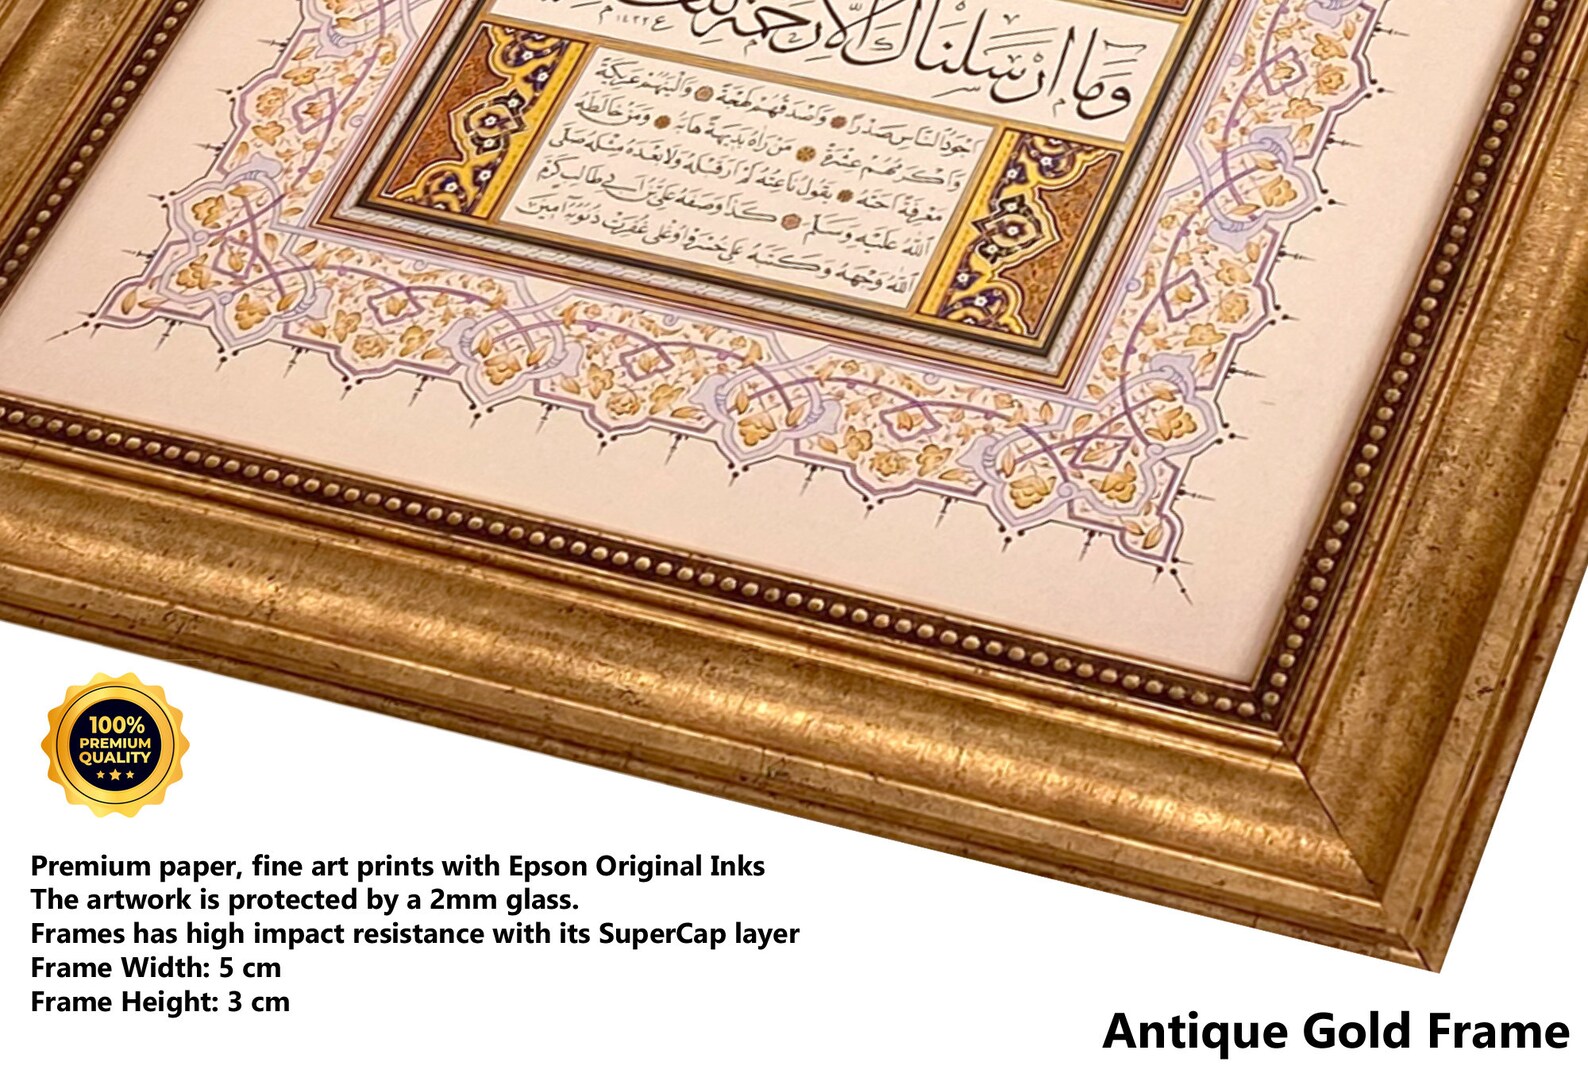 وَمَا اَرْسَلْنَاكَ اِلَّا رَحْمَةً
١٤٢٢
اجود الناس صدرا واصدقهم لهجة والينهم عريكة
واكرمهم عشرة من راه بديهة هابه ومن خالطه
معرفة احبه يقول ناعته لم ار قبله ولا بعده مثله صلى
الله عليه وسلم كذا وصفه علي بن ابي طالب كرم
الله وجهه وكتبه علي خسرو اوغلي غفرت ذنوبه امين
100%
PREMIUM
QUALITY
Premium paper, fine art prints with Epson Original Inks
The artwork is protected by a 2mm glass.
Frames has high impact resistance with its SuperCap layer
Frame Width: 5 cm
Frame Height: 3 cm
Antique Gold Frame